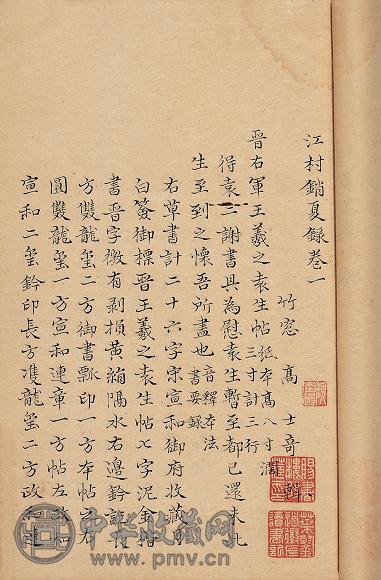 江村銷夏錄卷一
竹窓 高 士奇 輯
晉右軍王羲之袁生帖 紙本高八寸濶
三寸計三行
得袁二謝書具為慰袁生暫至都已還未此
生至到之懷吾所盡也 音釋本法
書要錄
右草書計二十六字宋宣和御府收藏月
白簽御標晉王羲之袁生帖七字泥金楷
書晉字微有剥損黃絹隔水右邊鈐
方雙龍璽二方御書瓢印一方本帖字右
圓雙龍璽一方宣和連章一方帖左政和
宣和二璽鈐印長方雙龍璽二方政和連
中华收藏网
www.pmv.cn